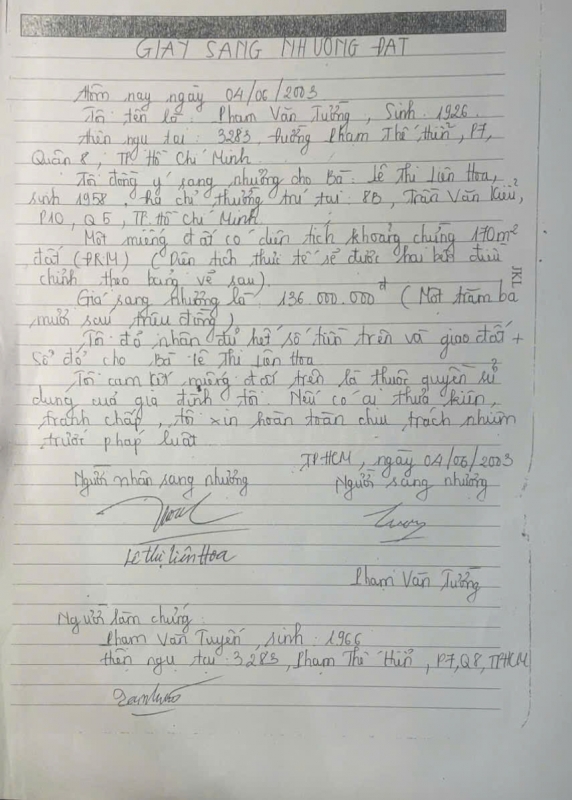 GIẤY SANG NHƯỢNG ĐẤT
Hôm nay ngày 04/06/2003
Tôi tên là Phạm Văn Tưởng, Sinh 1926
Hiện ngụ tại: 3283 đường Phạm Thế Hiển, P7,
Quận 8, TP Hồ Chí Minh
Tôi đồng ý sang nhượng cho Bà: Lê Thị Liên Hoa,
sinh 1958, địa chỉ thường trú tại: 8B, Trần Văn Kiểu,
P10, Q5, TP. Hồ Chí Minh
Một miếng đất có diện tích khoảng chừng 170m²
đất (PRM) (Diện tích thực tế sẽ được hai bên điều
chỉnh theo bảng vẽ sau).
JKL
Giá sang nhượng là: 136.000.000đ (Một trăm ba
mươi sáu triệu đồng)
Tôi đã nhận đủ hết số tiền trên và giao đất +
sổ đỏ cho Bà Lê Thị Liên Hoa
Tôi cam kết miếng đất trên là thuộc quyền sử
dụng của gia đình tôi. Nếu có ai thưa kiện,
tranh chấp, tôi xin hoàn toàn chịu trách nhiệm
trước pháp luật.
TPHCM, ngày 04/06/2003
Người nhận sang nhượng Người sang nhượng
Lê Thị Liên Hoa
Phạm Văn Tưởng
Người làm chứng:
Phạm Văn Tuyến, sinh: 1966
Hiện ngụ tại: 3283, Phạm Thế Hiển, P7, Q8, TPHCM